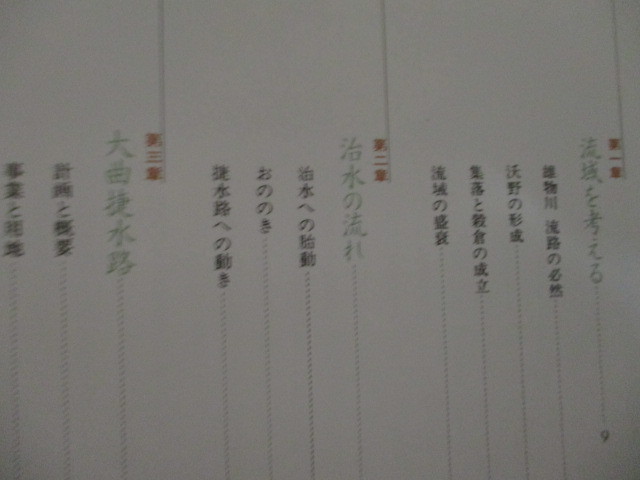 第一章
流域を考える
9
雄物川 流路の必然
沃野の形成
集落と穀倉の成立
流域の盛衰
第二章
治水の流れ
治水への胎動
おののき
捷水路への動き
第三章
大曲捷水路
計画と概要
事業と用地